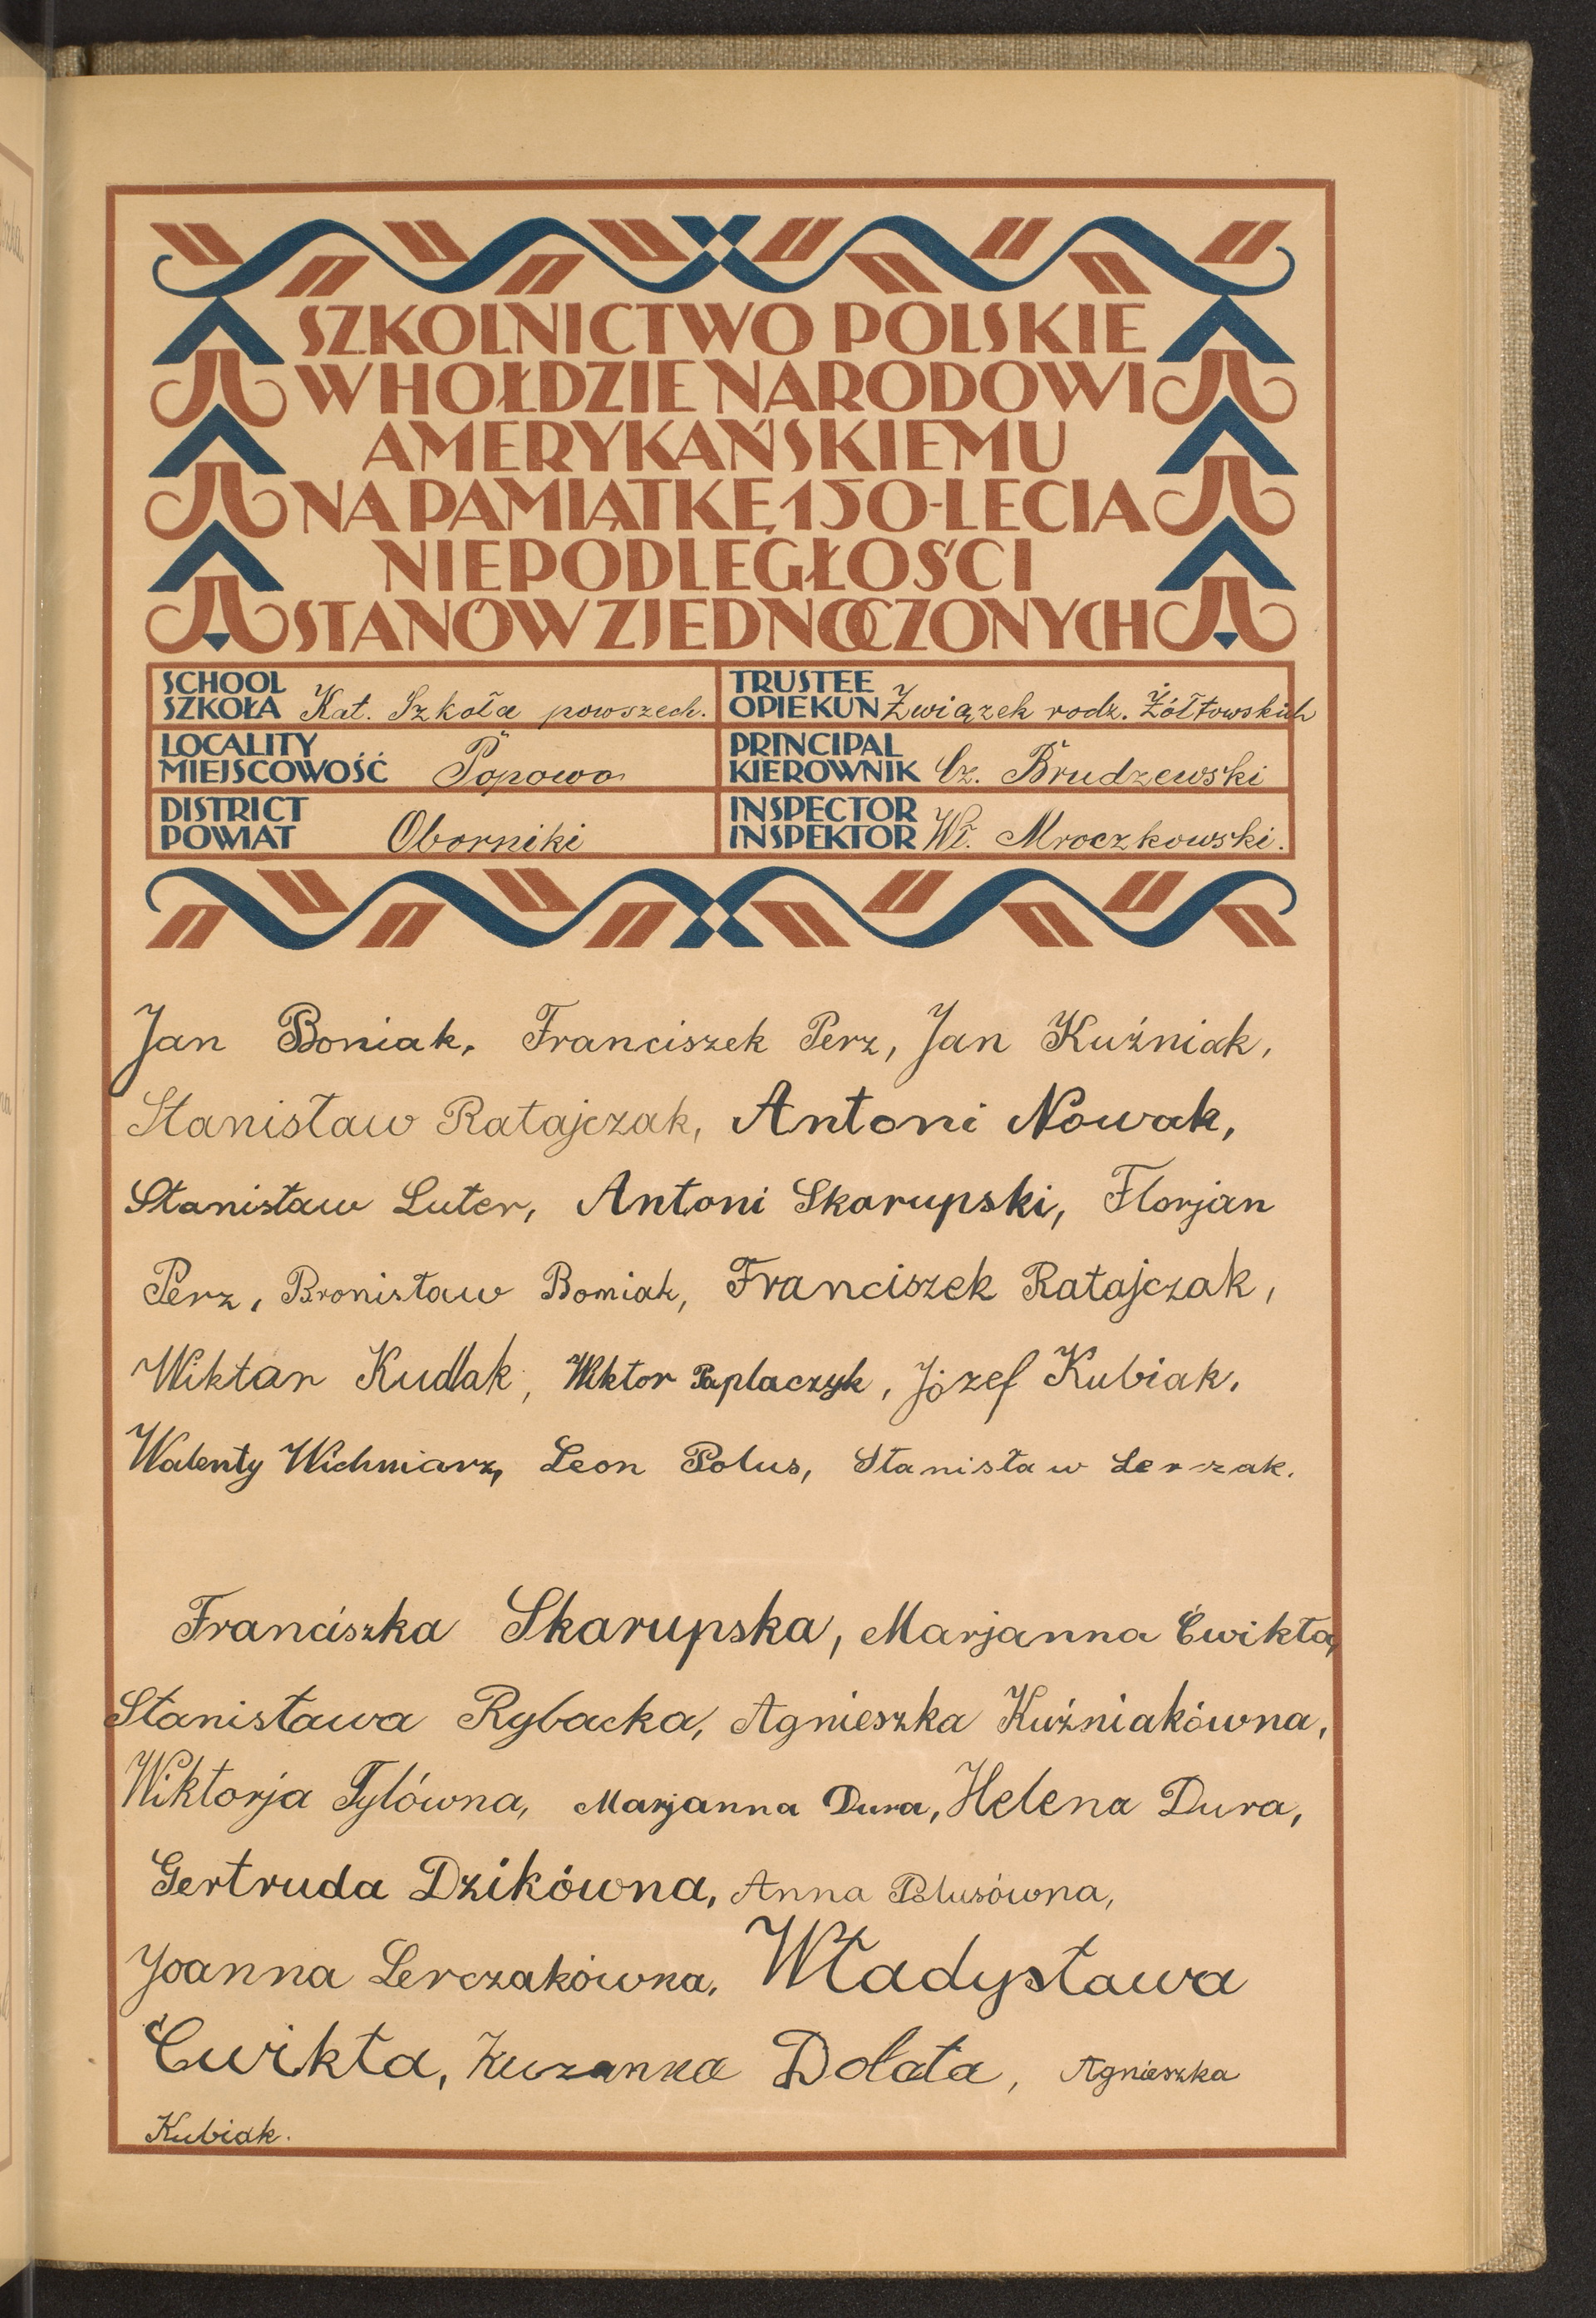 SZKOLNICTWO POLSKIE
W HOŁDZIE NARODOWI
AMERYKAŃSKIEMU
NA PAMIĄTKĘ 150-LECIA
NIEPODLEGŁOŚCI
STANÓW ZJEDNOCZONYCH
SCHOOL
SZKOŁA Kat. Szkoła powszech.
TRUSTEE
OPIEKUN Związek rodz. Żółtowskich
LOCALITY
MIEJSCOWOŚĆ Popowo
PRINCIPAL
KIEROWNIK Cz. Brudzewski
DISTRICT
POWIAT Oborniki
INSPECTOR
INSPEKTOR Wł. Mroczkowski.
Jan Boniak, Franciszek Perz, Jan Kuźniak,
Stanisław Ratajczak, Antoni Nowak,
Stanisław Luter, Antoni Skarupski, Florjan
Perz, Bronisław Boniak, Franciszek Ratajczak,
Wiktor Kudlak, Wiktor Paplaczyk, Józef Kubiak,
Walenty Wichniarz, Leon Polus, Stanisław Lerczak.
Franciszka Skarupska, Marjanna Ćwikła,
Stanisława Rybacka, Agnieszka Kuźniakówna,
Wiktorja Tylówna, Marjanna Dura, Helena Dura,
Gertruda Dzikówna, Anna Polusówna,
Joanna Lerczakówna, Władysława
Ćwikła, Zuzanna Dolata, Agnieszka
Kubiak.